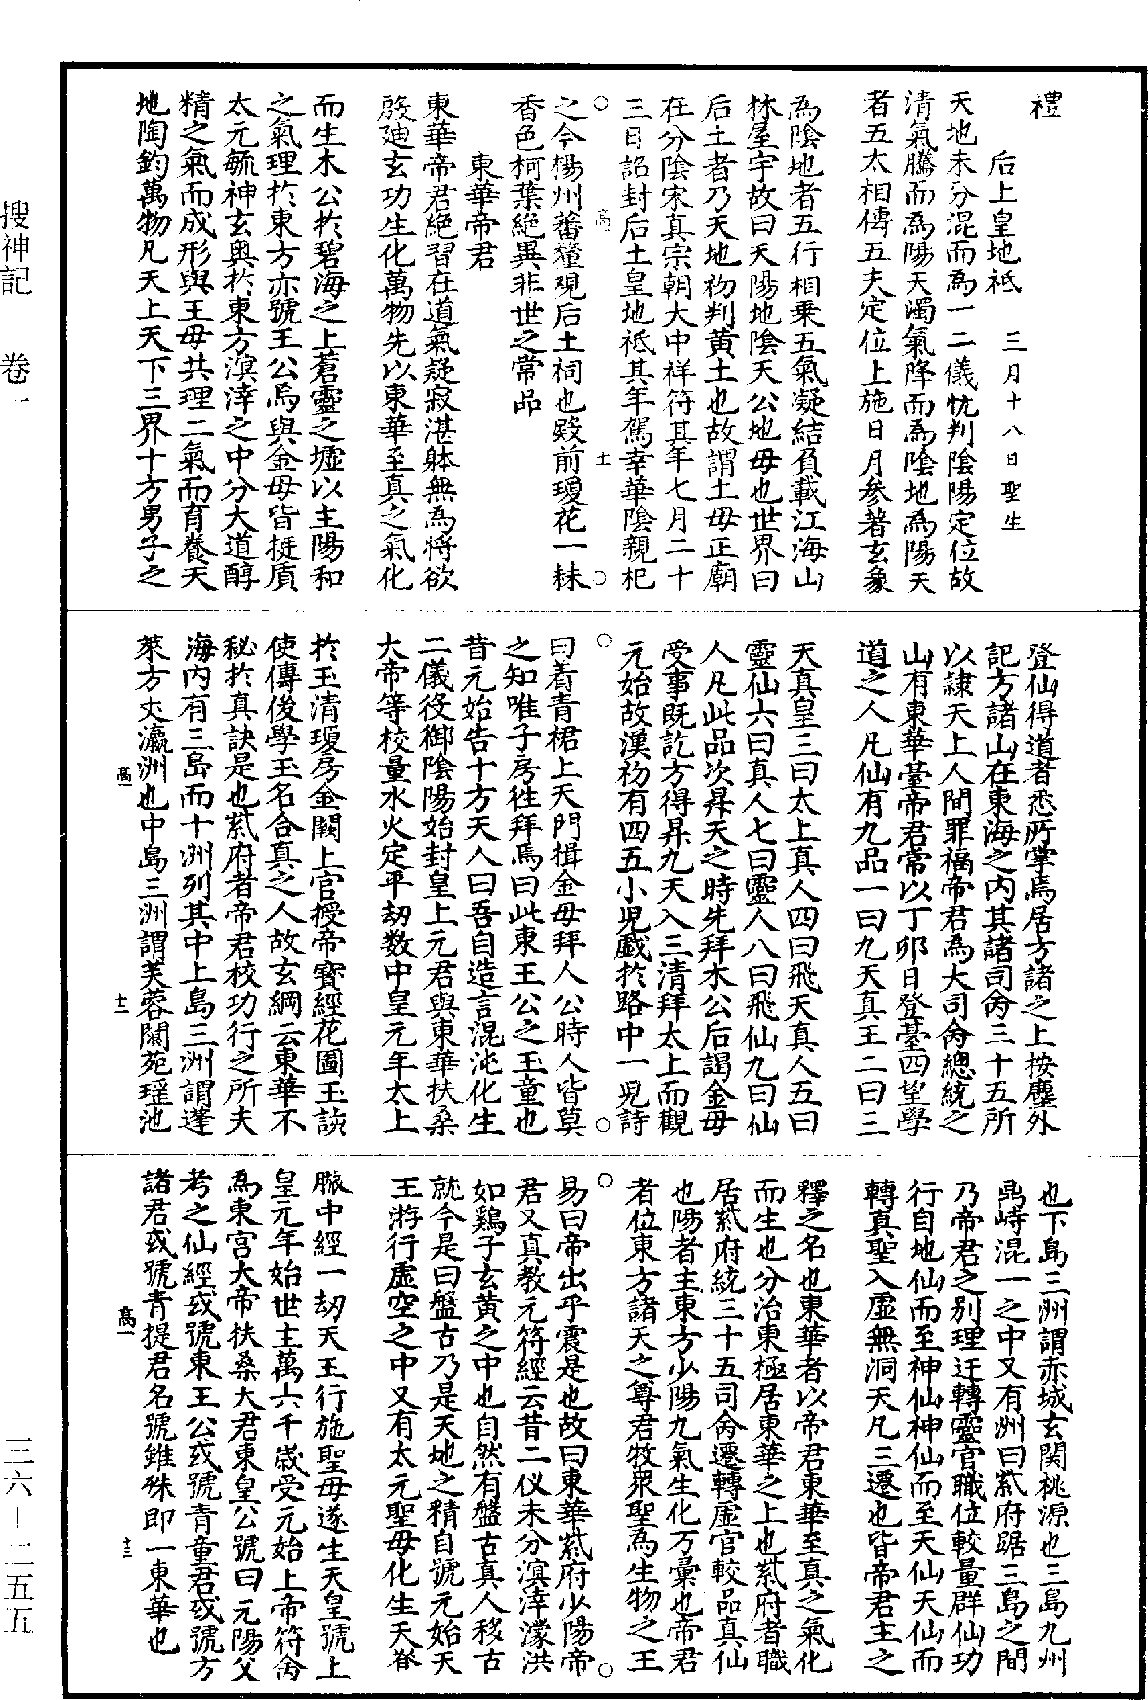 禮
后土皇地祗　三月十八日聖生
天地未分混而為一二儀忱判陰陽定位故
清氣騰而為陽天濁氣降而為陰地為陽天
者五太相傳五天定位上施日月參著玄象
為陰地者五行相乗五氣凝結負載江海山
林屋宇故曰天陽地陰天公地母也世界曰
后土者乃天地初判黄土也故謂土母正廟
在分陰宋真宗朝大中祥符其年七月二十
三日詔封后土皇地祗其年駕幸華陰親杞
高一
土
之今楊州蕃釐觀后土祠也殿前瓊花一株
香色柯葉絶異非世之常品
東華帝君
東華帝君絶習在道氣凝寂湛躰無為将欲
啟迪玄功生化萬物先以東華至真之氣化
而生木公扵碧海之上蒼靈之墟以主陽和
之氣理扵東方亦號王公焉與金母皆挺質
太元毓神玄奥扵東方溟涬之中分大道醇
精之氣而成形與王母共理二氣而育養天
地陶鈞萬物凡天上天下三界十方男子之
登仙得道者悉所掌焉居方諸之上按塵外
記方諸山在東海之内其諸司命三十五所
以隷天上人間罪福帝君為大司命總統之
山有東華臺帝君常以丁卯日登臺四望學
道之人凡仙有九品一曰九天真王二曰三
天真皇三曰太上真人四曰飛天真人五曰
靈仙六曰真人七曰靈人八曰飛仙九曰仙
人凡此品次昇天之時先拜木公后謁金母
受事既訖方得昇九天入三清拜太上而觀
元始故漢初有四五小児戯扵路中一児詩
曰着青裙上天門揖金母拜人公時人皆莫
之知唯子房徃拜焉曰此東王公之玉童也
昔元始告十方天人曰吾自造言混沌化生
二儀役御陰陽始封皇上元君與東華扶桑
大帝等校量水火定平刼数中皇元年太上
扵玉清瓊房金闕上官授帝寳經花圖玉訣
使傳俊學玉名合真之人故玄綱云東華不
秘扵真訣是也紫府者帝君校功行之所夫
海内有三島而十洲列其中上島三洲謂蓬
萊方丈瀛洲也中島三洲謂芙蓉閬苑瑶池
高一
十二
也下島三洲謂赤城玄関桃源也三島九州
鼎峙混一之中又有洲曰紫府踞三島之間
乃帝君之别理迁轉靈官職位較量群仙功
行自地仙而至神仙神仙而至天仙天仙而
轉真聖入虚無洞天凡三遷也皆帝君主之
釋之名也東華者以帝君東華至真之氣化
而生也分治東極居東華之上也紫府者職
居紫府統三十五司命遷轉虚官較品真仙
也陽者主東方少陽九氣生化万彙也帝君
者位東方諸天之尊君牧衆聖為生物之王
易曰帝出乎震是也故曰東華紫府少陽帝
君又真教元符經云昔二仪未分溟涬濛洪
如鷄子玄黄之中也自然有盤古真人移古
就今是曰盤古乃是天地之精自號元始天
王游行虚空之中又有太元聖母化生天脊
脹中經一刼天王行施聖母遂生天皇號上
皇元年始世主萬六千歲受元始上帝符命
為東宫大帝扶桑大君東皇公號曰元陽父
考之仙經或號東王公或號青童君或號方
諸君或號青提君名號雖殊即一東華也
高一
十三
搜神記　卷一
三六—二五五